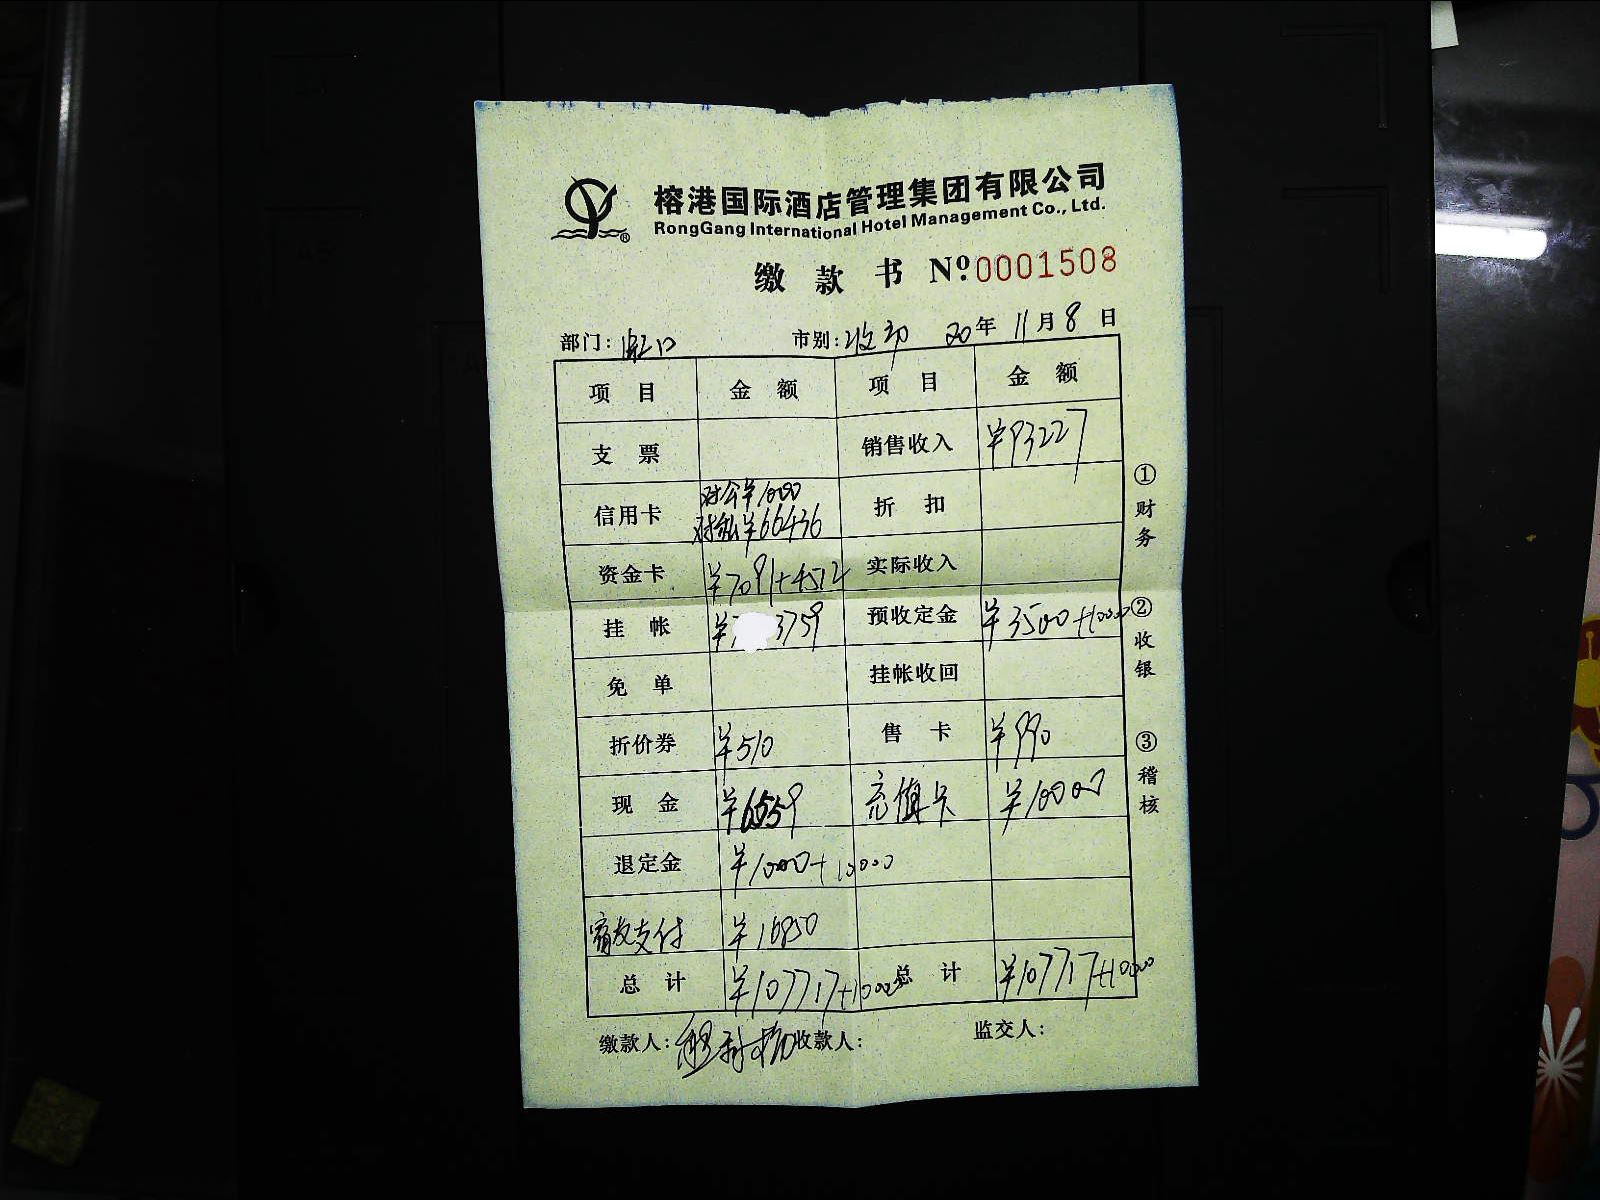 榕港国际酒店管理集团有限公司
RongGang International Hotel Management Co., Ltd.
缴款书 Nº:0001508
部门:虹口 市别: 20年 11月 8日
项目 金额 项目 金额
支票 销售收入 ¥93227
信用卡 对公¥1000 折扣
对私¥66436
资金卡 ¥7091+4512 实际收入
挂帐 ¥ 3759 预收定金 ¥3500+10000
免单 挂帐收回
折价券 ¥510 售卡 ¥990
现金 ¥6559 充值卡 ¥10000
退定金 ¥1000+10000
支付 ¥16850
总计 ¥107717+10000 总计 ¥107717+10000
缴款人: 收款人: 监交人:
①财务
②收银
③稽核